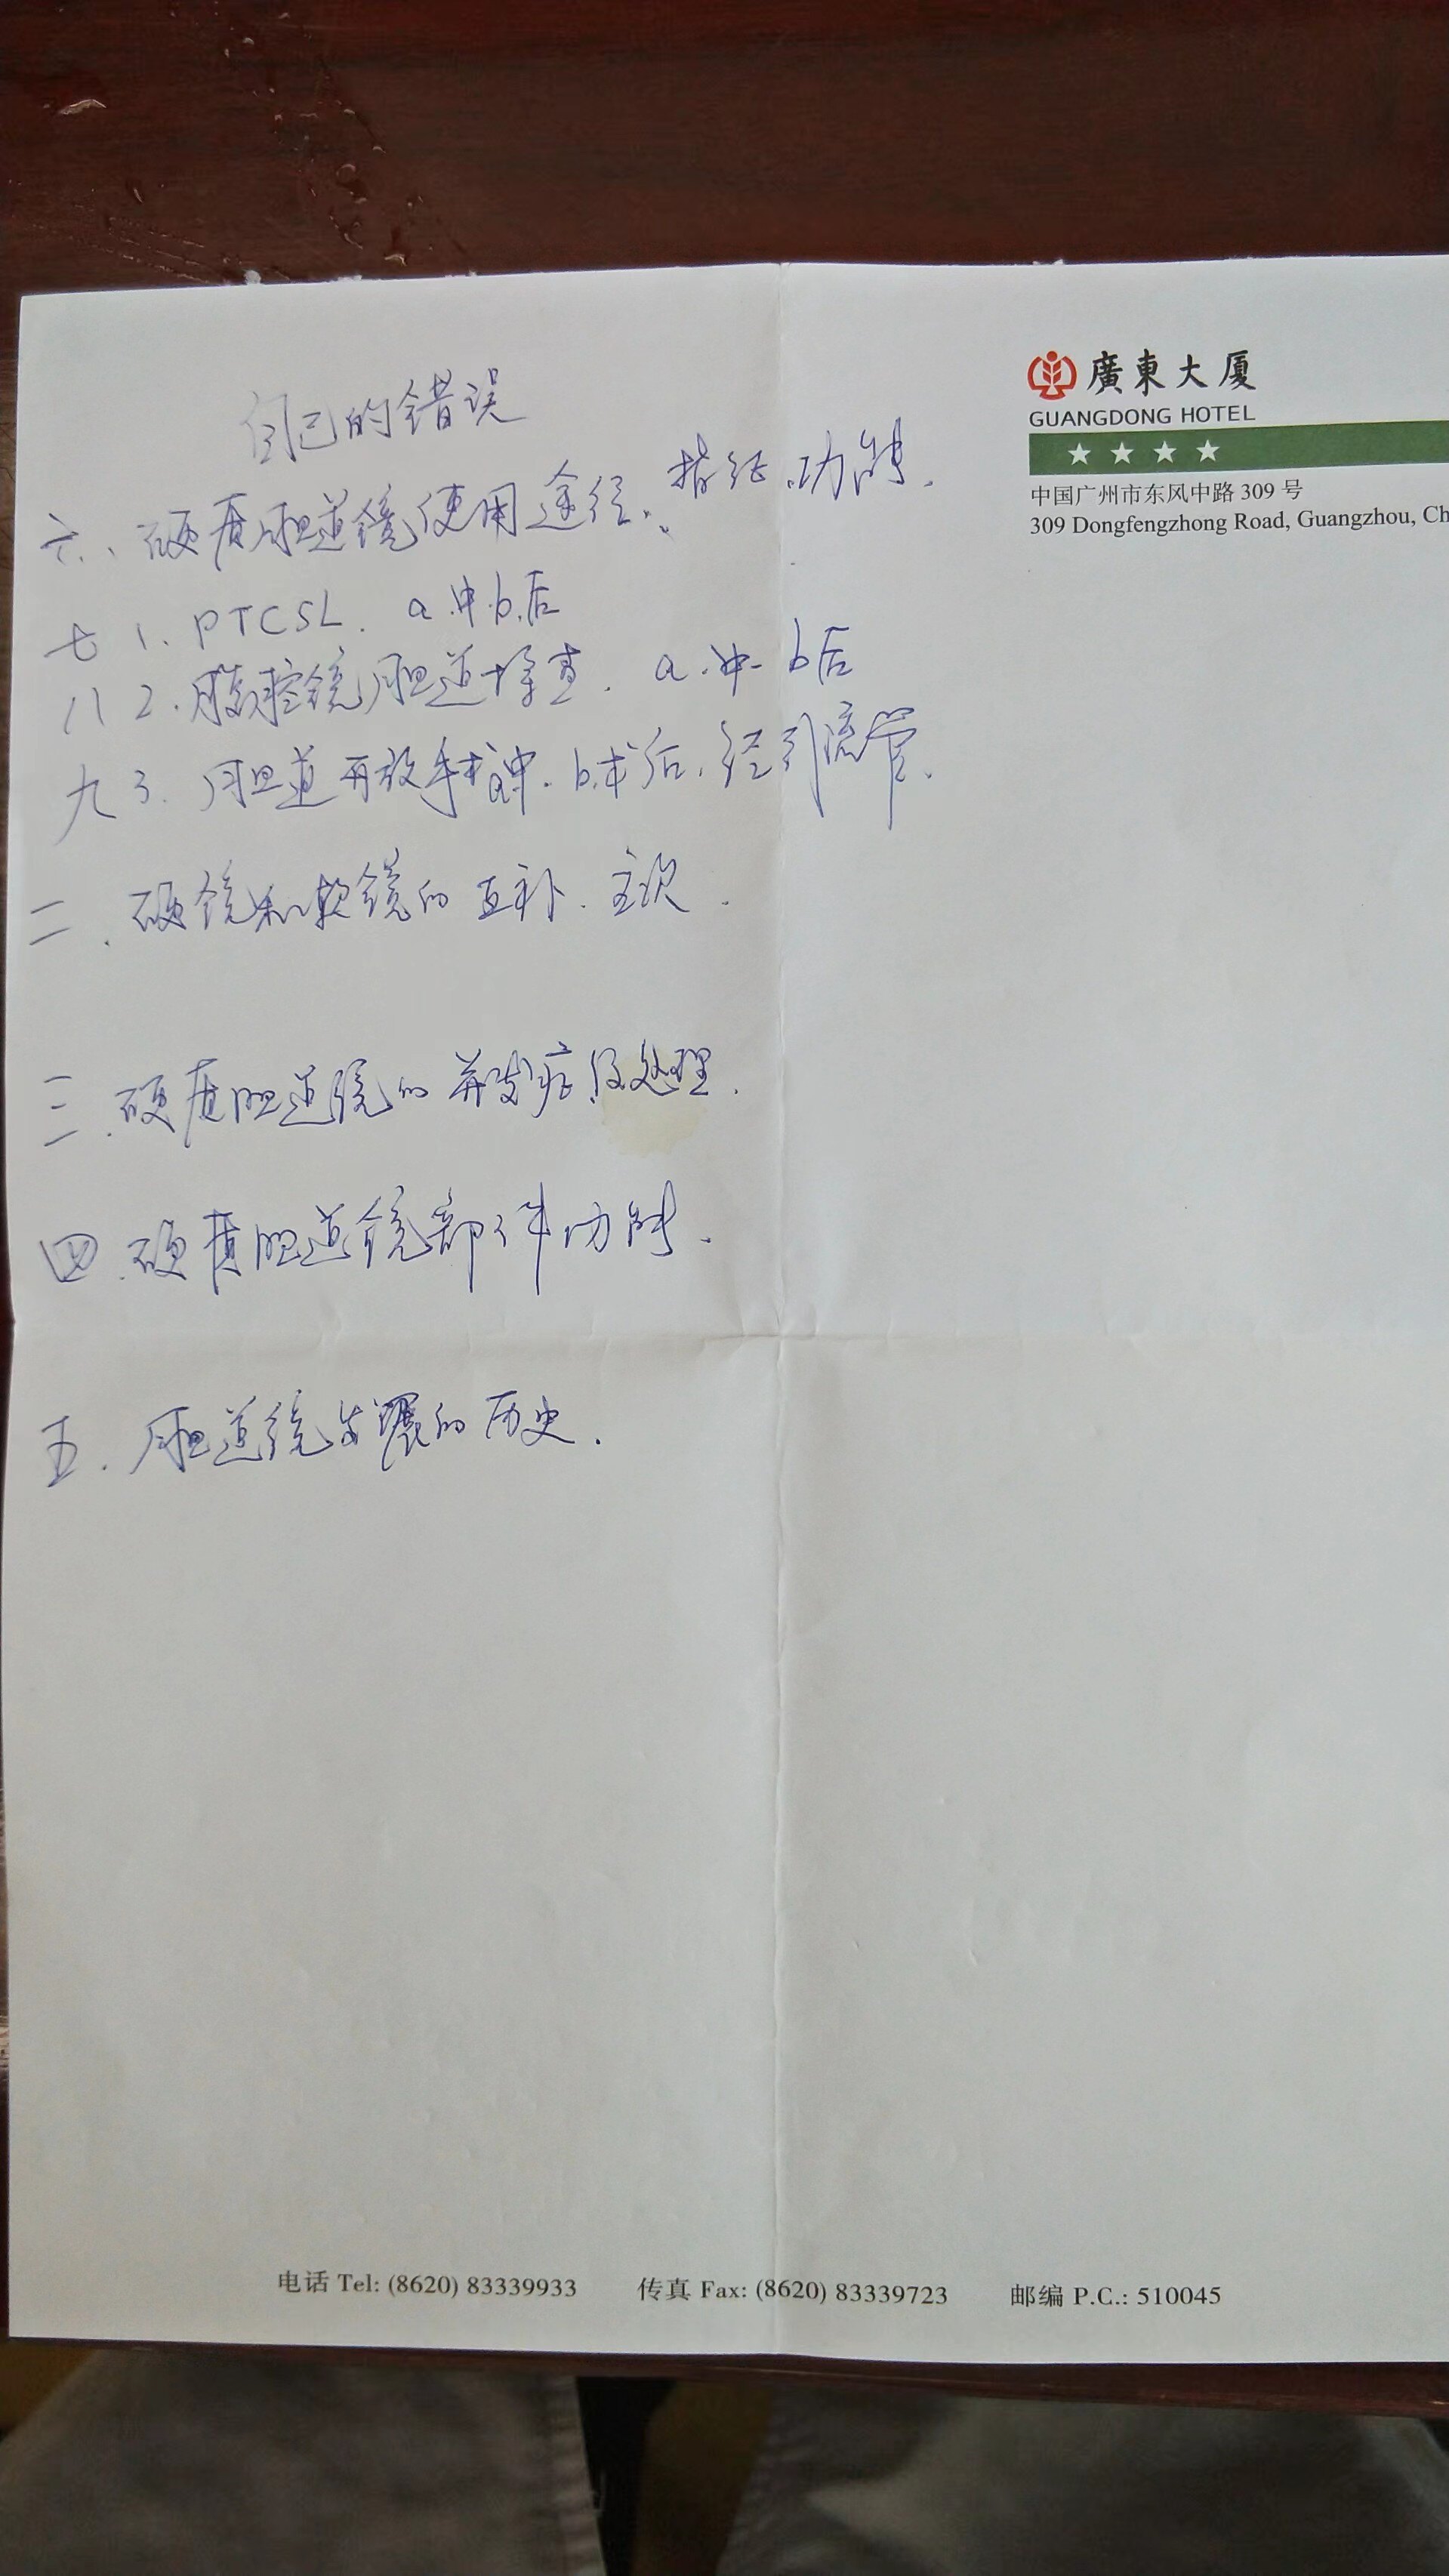 廣東大厦
GUANGDONG HOTEL
中国广州市东风中路 309 号
309 Dongfengzhong Road, Guangzhou, Ch
自己的错误
六、硬质胆道镜使用途径、指征、功能.
七 1. PTCSL. a.中 b.后
八 2. 腹腔镜胆道探查. a.中 b后
九 3. 胆道开放手术a中. b.术后, 经引流管.
二. 硬镜和软镜的互补. 主次.
三. 硬质胆道镜的并发症及处理.
四. 硬质胆道镜部件功能.
五. 胆道镜发展的历史.
电话 Tel: (8620) 83339933 传真 Fax: (8620) 83339723 邮编 P.C.: 510045